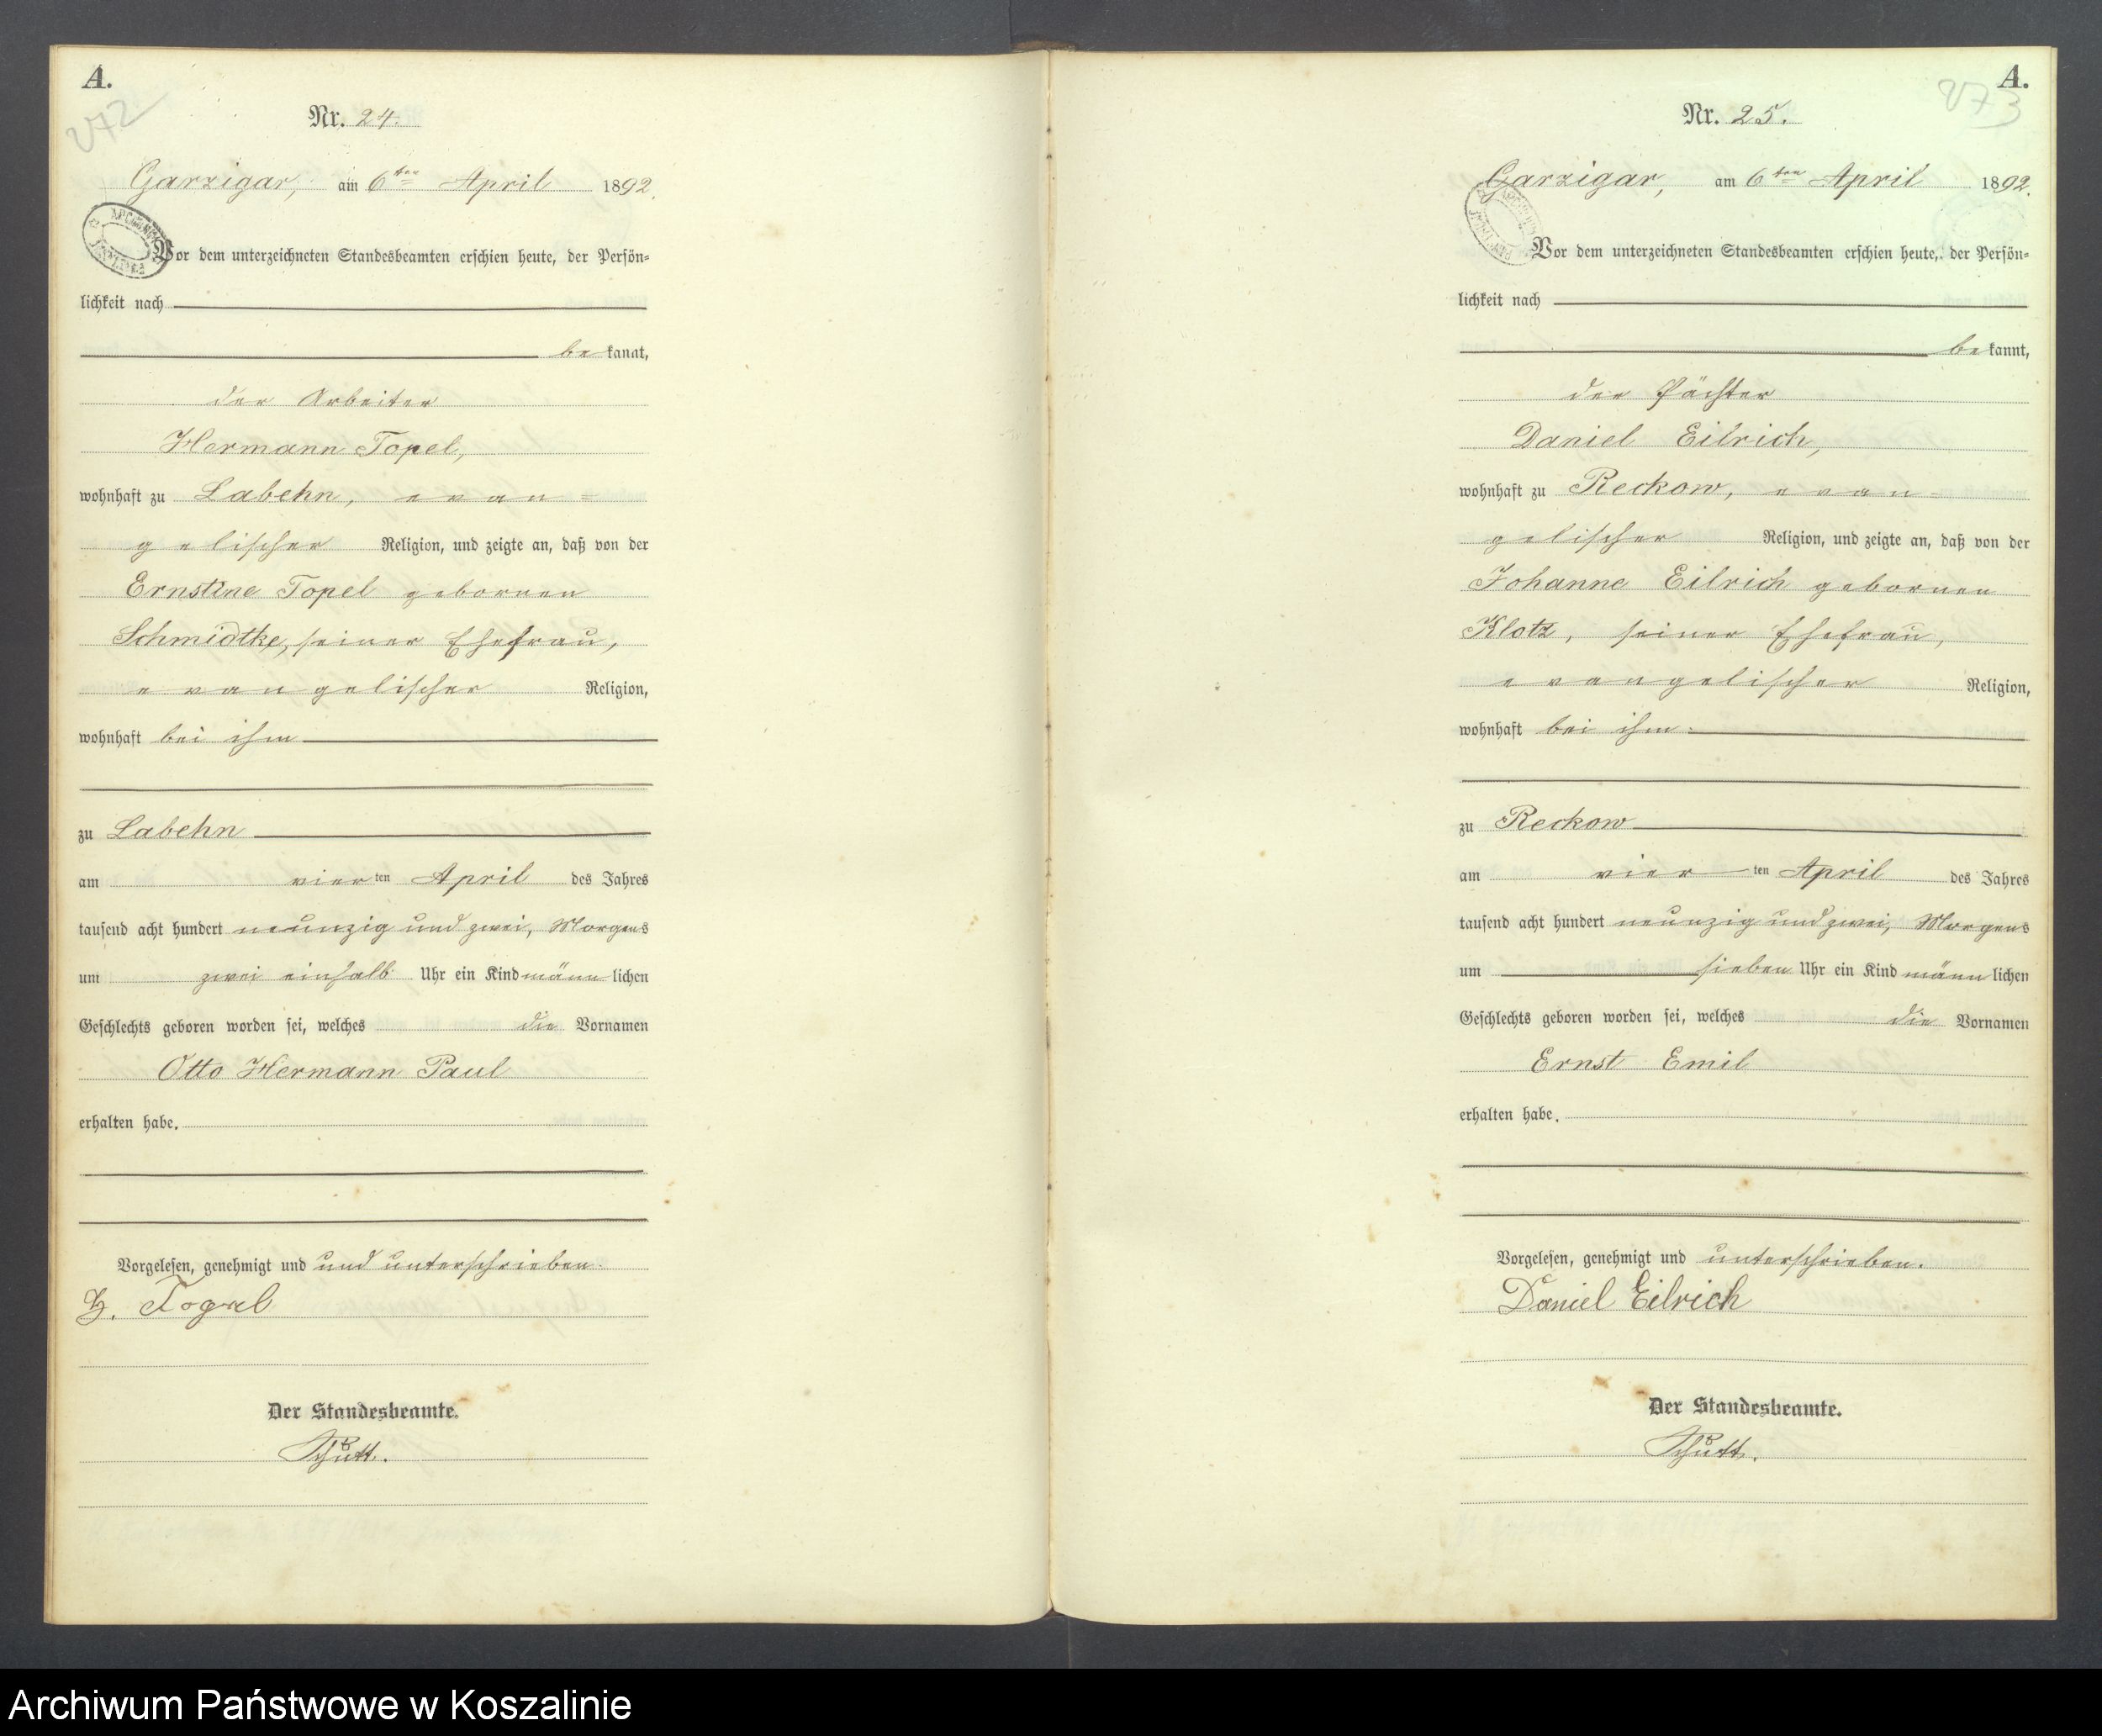 A.
272
Nr. 24.
Garzigar, am 6ten April 1892.
Vor dem unterzeichneten Standesbeamten erschien heute, der Persön-
lichkeit nach
bekannt,
der Arbeiter
Hermann Topel,
wohnhaft zu Labehn, evan-
gelischer Religion, und zeigte an, daß von der
Ernstine Topel gebornen
Schmidtke, seiner Ehefrau,
evangelischer Religion,
wohnhaft bei ihm
zu Labehn
am vierten April des Jahres
tausend acht hundert neunzig und zwei, Morgens
um zwei einhalb Uhr ein Kind männlichen
Geschlechts geboren worden sei, welches die Vornamen
Otto Hermann Paul
erhalten habe.
Vorgelesen, genehmigt und und unterschrieben.
H. Topel
Der Standesbeamte.
Schütt.
A.
273
Nr. 25.
Garzigar, am 6ten April 1892.
Vor dem unterzeichneten Standesbeamten erschien heute, der Persön-
lichkeit nach
bekannt,
der Pächter
Daniel Eilrich,
wohnhaft zu Reckow, evan-
gelischer Religion, und zeigte an, daß von der
Johanne Eilrich gebornen
Klotz, seiner Ehefrau,
evangelischer Religion,
wohnhaft bei ihm
zu Reckow
am vierten April des Jahres
tausend acht hundert neunzig und zwei, Morgens
um sieben Uhr ein Kind männlichen
Geschlechts geboren worden sei, welches die Vornamen
Ernst Emil
erhalten habe.
Vorgelesen, genehmigt und unterschrieben.
Daniel Eilrich
Der Standesbeamte.
Schütt.
Archiwum Państwowe w Koszalinie